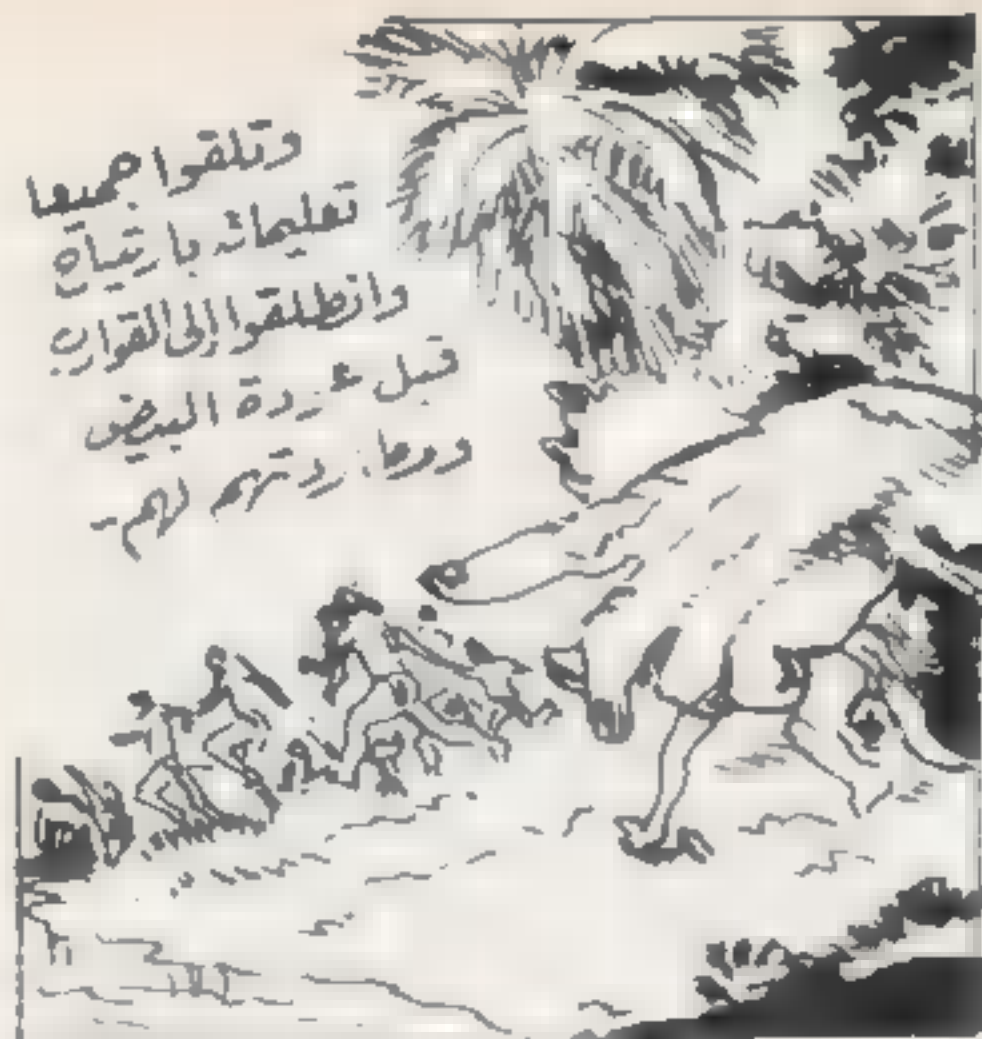 وتلقوا جميعا
تعليماته بانتباه
وانطلقوا إلى القوارب
قبل عودة البيض
ومطاردتهم لهم